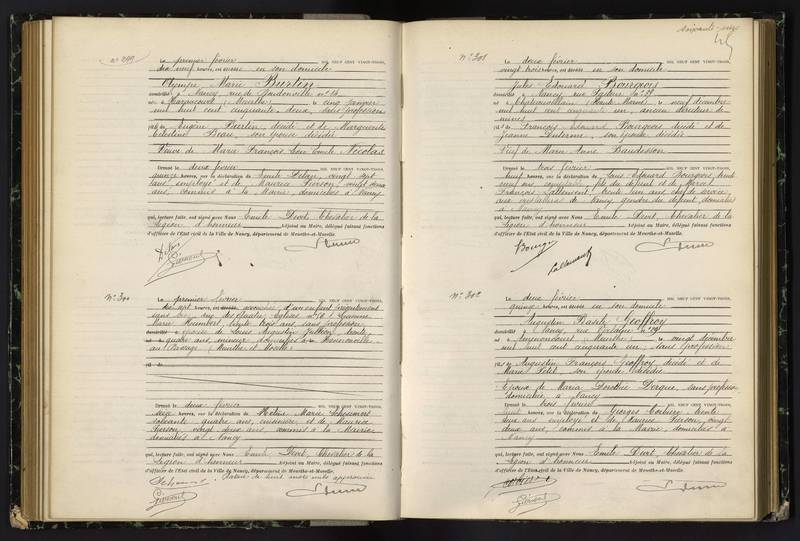 N° 299
Le premier février MIL NEUF CENT VINGT-TROIS,
dix neuf heures, est en son domicile
Olympe Marie Burtin
domiciliée à Nancy, rue de
née à Haraucourt (Meurthe) le cinq janvier
mil huit cent cinquante-deux, sans profession
fille de Eugène Burtin, décédé et de Marguerite
Célestine Beau, son épouse décédée
Veuve de Marie François Léon Emile Nicolas
Dressé le deux février MIL NEUF CENT VINGT-TROIS,
quinze heures, sur la déclaration de Emile, vingt sept
ans, employé et de Maurice Pierson, vingt deux
ans, commis à la Mairie, domiciliés à Nancy
qui, lecture faite, ont signé avec Nous Emile Devit, Chevalier de la
Légion d'honneur Adjoint au Maire, délégué faisant fonctions
d'officier de l'État civil de la Ville de Nancy, département de Meurthe-et-Moselle.
N° 300
Le premier février MIL NEUF CENT VINGT-TROIS,
dix sept heures, est accouchée d'un enfant présentement
sans vie, rue des Glacis
Marie Humbert, trente trois ans, sans profession
épouse de Louis Augustin, trente
quatre ans, mineur, domiciliés à
au Passage (Meurthe et Moselle)
Dressé le deux février MIL NEUF CENT VINGT-TROIS,
seize heures, sur la déclaration de Marie
soixante quatre ans, et de Maurice
Pierson, vingt deux ans, commis à la Mairie
domiciliés à Nancy
qui, lecture faite, ont signé avec Nous Emile Devit, Chevalier de la
Légion d'honneur Adjoint au Maire, délégué faisant fonctions
d'officier de l'État civil de la Ville de Nancy, département de Meurthe-et-Moselle.
Rature de huit mots nuls approuvée
soixante-seize
N° 301
Le deux février MIL NEUF CENT VINGT-TROIS,
vingt trois heures, est en son domicile
Jules Edouard Bourgeois
domicilié à Nancy, rue Pasteur n° 29
né à Châteauvillain (Haute Marne) le neuf décembre
mil huit cent cinquante un, ancien directeur de
mines
fils de François Edouard Bourgeois décédé et de
Jeanne, son épouse décédée
Veuf de Marie Anne Baudesson
Dressé le trois février MIL NEUF CENT VINGT-TROIS,
neuf heures, sur la déclaration de Louis Edouard Bourgeois, trente
neuf ans, comptable, fils du défunt et de Marcel
François Lallement, trente cinq ans, chef de service
gendre du défunt, domiciliés
à Nancy
qui, lecture faite, ont signé avec Nous Emile Devit, Chevalier de la
Légion d'honneur Adjoint au Maire, délégué faisant fonctions
d'officier de l'État civil de la Ville de Nancy, département de Meurthe-et-Moselle.
Lallement
N° 302
Le deux février MIL NEUF CENT VINGT-TROIS,
quinze heures, est en son domicile
Augustin Basile Geoffroy
domicilié à Nancy, rue n° 19
né à (Meurthe) le vingt décembre
mil huit cent cinquante un, sans profession
fils de Augustin François Geoffroy décédé et de
Marie Petit, son épouse décédée
Epoux de Maria Dorothée Dorgue, sans profession
domiciliée à Nancy
Dressé le trois février MIL NEUF CENT VINGT-TROIS,
huit heures, sur la déclaration de Georges, trente
deux ans, employé et de Maurice Pierson, vingt
deux ans, commis à la Mairie, domiciliés à
Nancy
qui, lecture faite, ont signé avec Nous Emile Devit, Chevalier de la
Légion d'honneur Adjoint au Maire, délégué faisant fonctions
d'officier de l'État civil de la Ville de Nancy, département de Meurthe-et-Moselle.